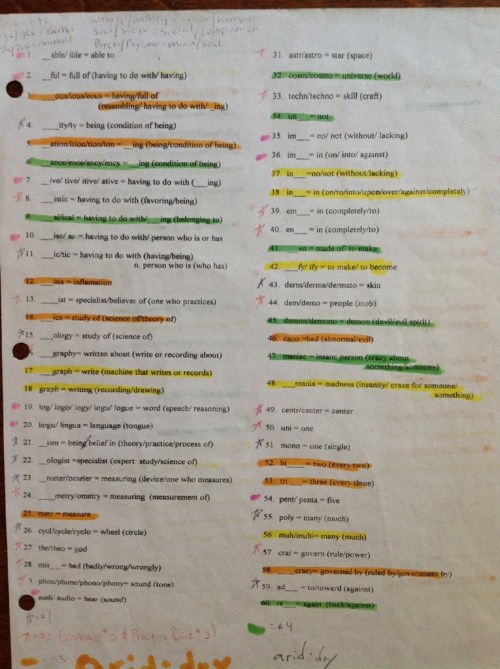 1. __able/ ible = able to
2. __ful = full of (having to do with/ having)
3. __ous/ious/eous = having/full of
(resembling/ having to do with/__ing)
4. __ity/ty = being (condition of being)
5. ation/ition/tion/ion = __ing (being/condition of being)
ance/ence/ancy/ency = __ing (condition of being)
7. __ive/ tive/ itive/ ative = having to do with (__ing)
8. __istic = having to do with (favoring/being)
9. al/ical = having to do with/__ing (belonging to)
10. __iac/ ac = having to do with/ person who is or has
11. __ic/tic = having to do with (having/being)
n. person who is (who has)
12. __itis = inflamation
13. __ist = specialist/believer of (one who practices)
14. __ics = study of (science of/theory of)
15. __ology = study of (science of)
__graphy= written about (write or recording about)
17. __graph = write (machine that writes or records)
18. graph = writing (recording/drawing)
19. log/ logis/ logy/ loga/ logue = word (speech/ reasoning)
20. lingu/ lingua = language (tongue)
21. __ism = being/belief in (theory/practice/process of)
22. __ologist =specialist (expert: study/science of)
23. __meter/ometer = measuring (device/one who measures)
24. __metry/ometry = measuring (measurement of)
25. metr = measure
26. cycl/cycle/cyclo = wheel (circle)
27. the/theo = god
28. mis__ = bad (badly/wrong/wrongly)
9. phon/phone/phono/phony= sound (tone)
audi/ audio = hear (sound)
31. astr/astro = star (space)
32. cosm/cosmo = universe (world)
33. techn/techno = skill (craft)
34. un__ = not
35. im__ = no/ not (without/ lacking)
36. im__ = in (on/ into/ against)
37. in__ =no/not (without/lacking)
38. in__ = in (on/to/into/upon/over/against/completely)
39. em__ = in (completely/to)
40. en__ = in (completely/to)
41. __en = made of/ to make
42. __fy/ ify = to make/ to become
43. derm/derma/dermato = skin
44. dem/demo = people (mob)
45. demon/demono = demon (devil/evil spirit)
46. caco =bad (abnormal/evil)
47. maniac = insane person (crazy about
something/someone)
48. __mania = madness (insanity/ craze for someone/
something)
49. centr/center = center
50. uni = one
51. mono = one (single)
52. bi__ = two (every two)
53. tri__ = three (every three)
54. pent/ penta = five
55. poly = many (much)
56. mult/multi= many (much)
57. crat = govern (rule/power)
58. __cracy= governed by (ruled by/government by)
59. ad__ = to/toward (against)
60. re__ = again (back/against)
= #4
arid: dry